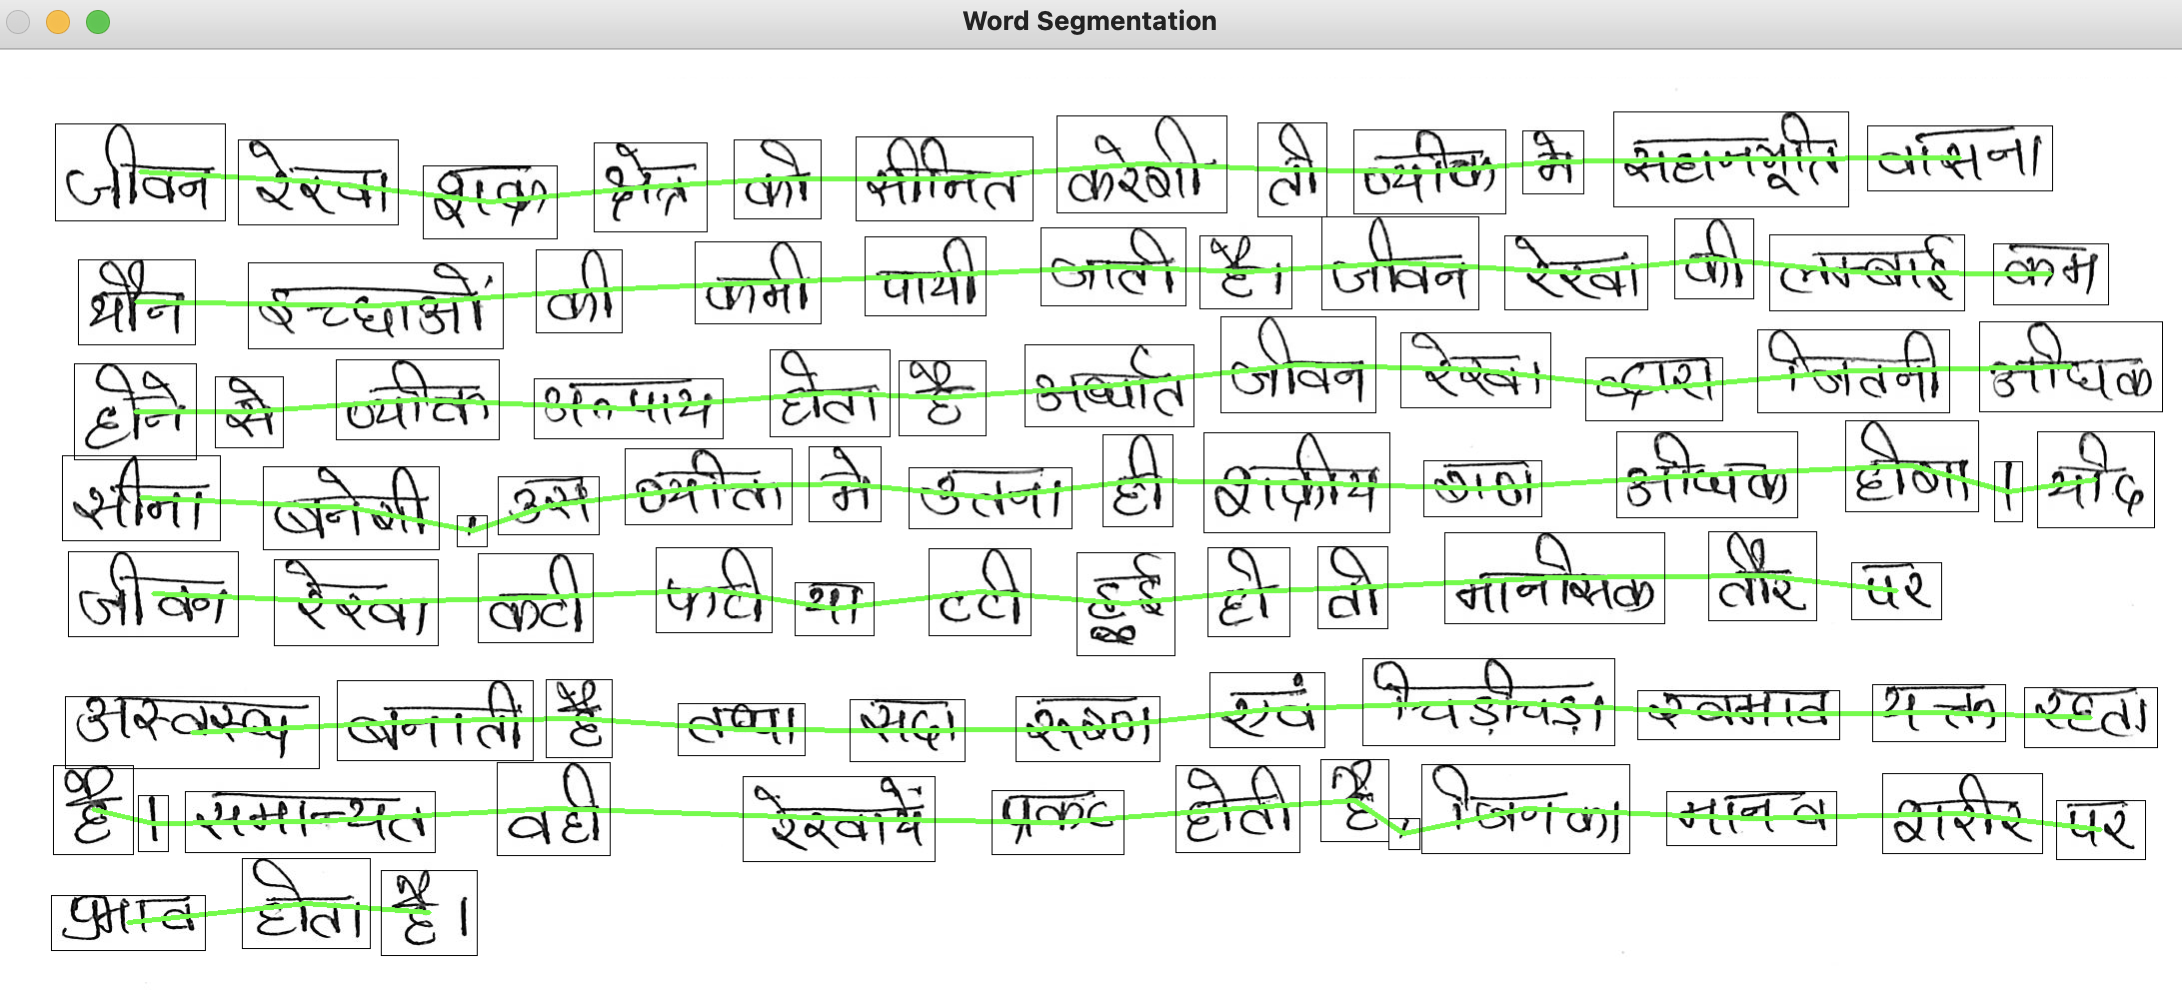 Word Segmentation
जीवन रेखा शुक्र क्षेत्र को सीमित करेगी तो व्यक्ति मे सहानभूति वासना
यौन इच्छाओं की कमी पायी जाती है। जीवन रेखा की लम्बाई कम
होने से व्यक्ति अल्पायु होता है अर्थात जीवन रेखा द्वारा जितनी अधिक
सीमा बनेगी , उस व्यक्ति मे उतना ही शुक्रीय गुण अधिक होगा । यदि
जीवन रेखा कटी फटी या टटी हुई हो तो मानसिक तौर पर
अस्वस्थ बनाती है तथा सदा रुग्ण एवं चिड़चिड़ा स्वभाव यक्त रहता
है । समान्यत वही रेखायें प्रकट होती है , जिनका मानव शरीर पर
प्रभाव होता है ।